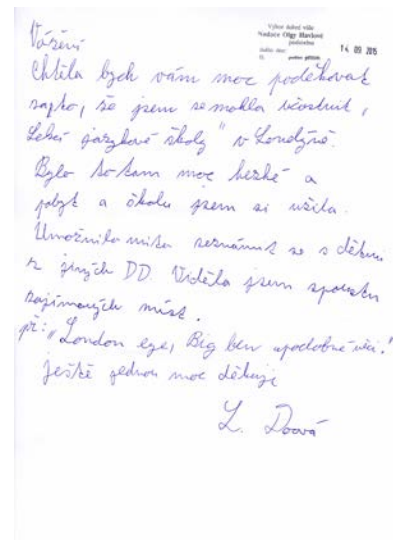 Výbor dobré vůle
Nadace Olgy Havlové
14 09 2015
Vážení
chtěla bych vám moc poděkovat
zato, že jsem se mohla účastnit „
Letní jazykové školy" v Londýně.
Bylo to tam moc hezké a
pobyt a školu jsem si užila.
Umožnilo mi to seznámit se s dětmi
z jiných DD. Viděla jsem spoustu
zajímavých míst.
př: „London eye, Big ben apodobné věci."
Ještě jednou moc děkuji
L.